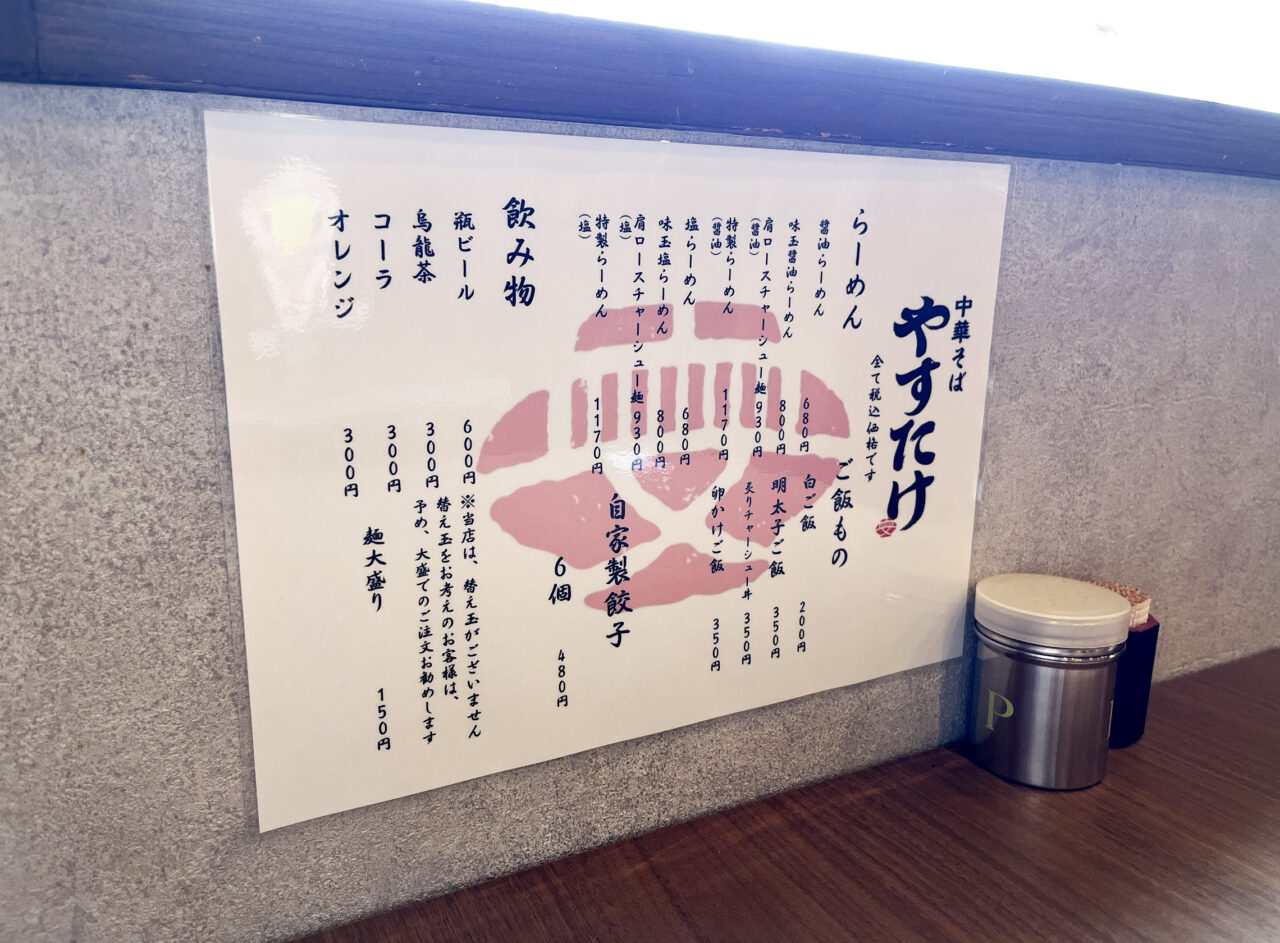 中華そば
やすたけ
全て税込価格です
らーめん
醬油らーめん 680円
味玉醬油らーめん 800円
肩ロースチャーシュー麺 930円
(醬油)
特製らーめん 1170円
(醬油)
塩らーめん 680円
味玉塩らーめん 800円
肩ロースチャーシュー麺 930円
(塩)
特製らーめん 1170円
(塩)
ご飯もの
白ご飯 200円
明太子ご飯 350円
炙りチャーシュー丼 350円
卵かけご飯 350円
自家製餃子
6個 480円
飲み物
瓶ビール 600円
烏龍茶 300円
コーラ 300円
オレンジ 300円
※当店は、替え玉がございません
替え玉をお考えのお客様は、
予め、大盛でのご注文お勧めします
麺大盛り 150円
P